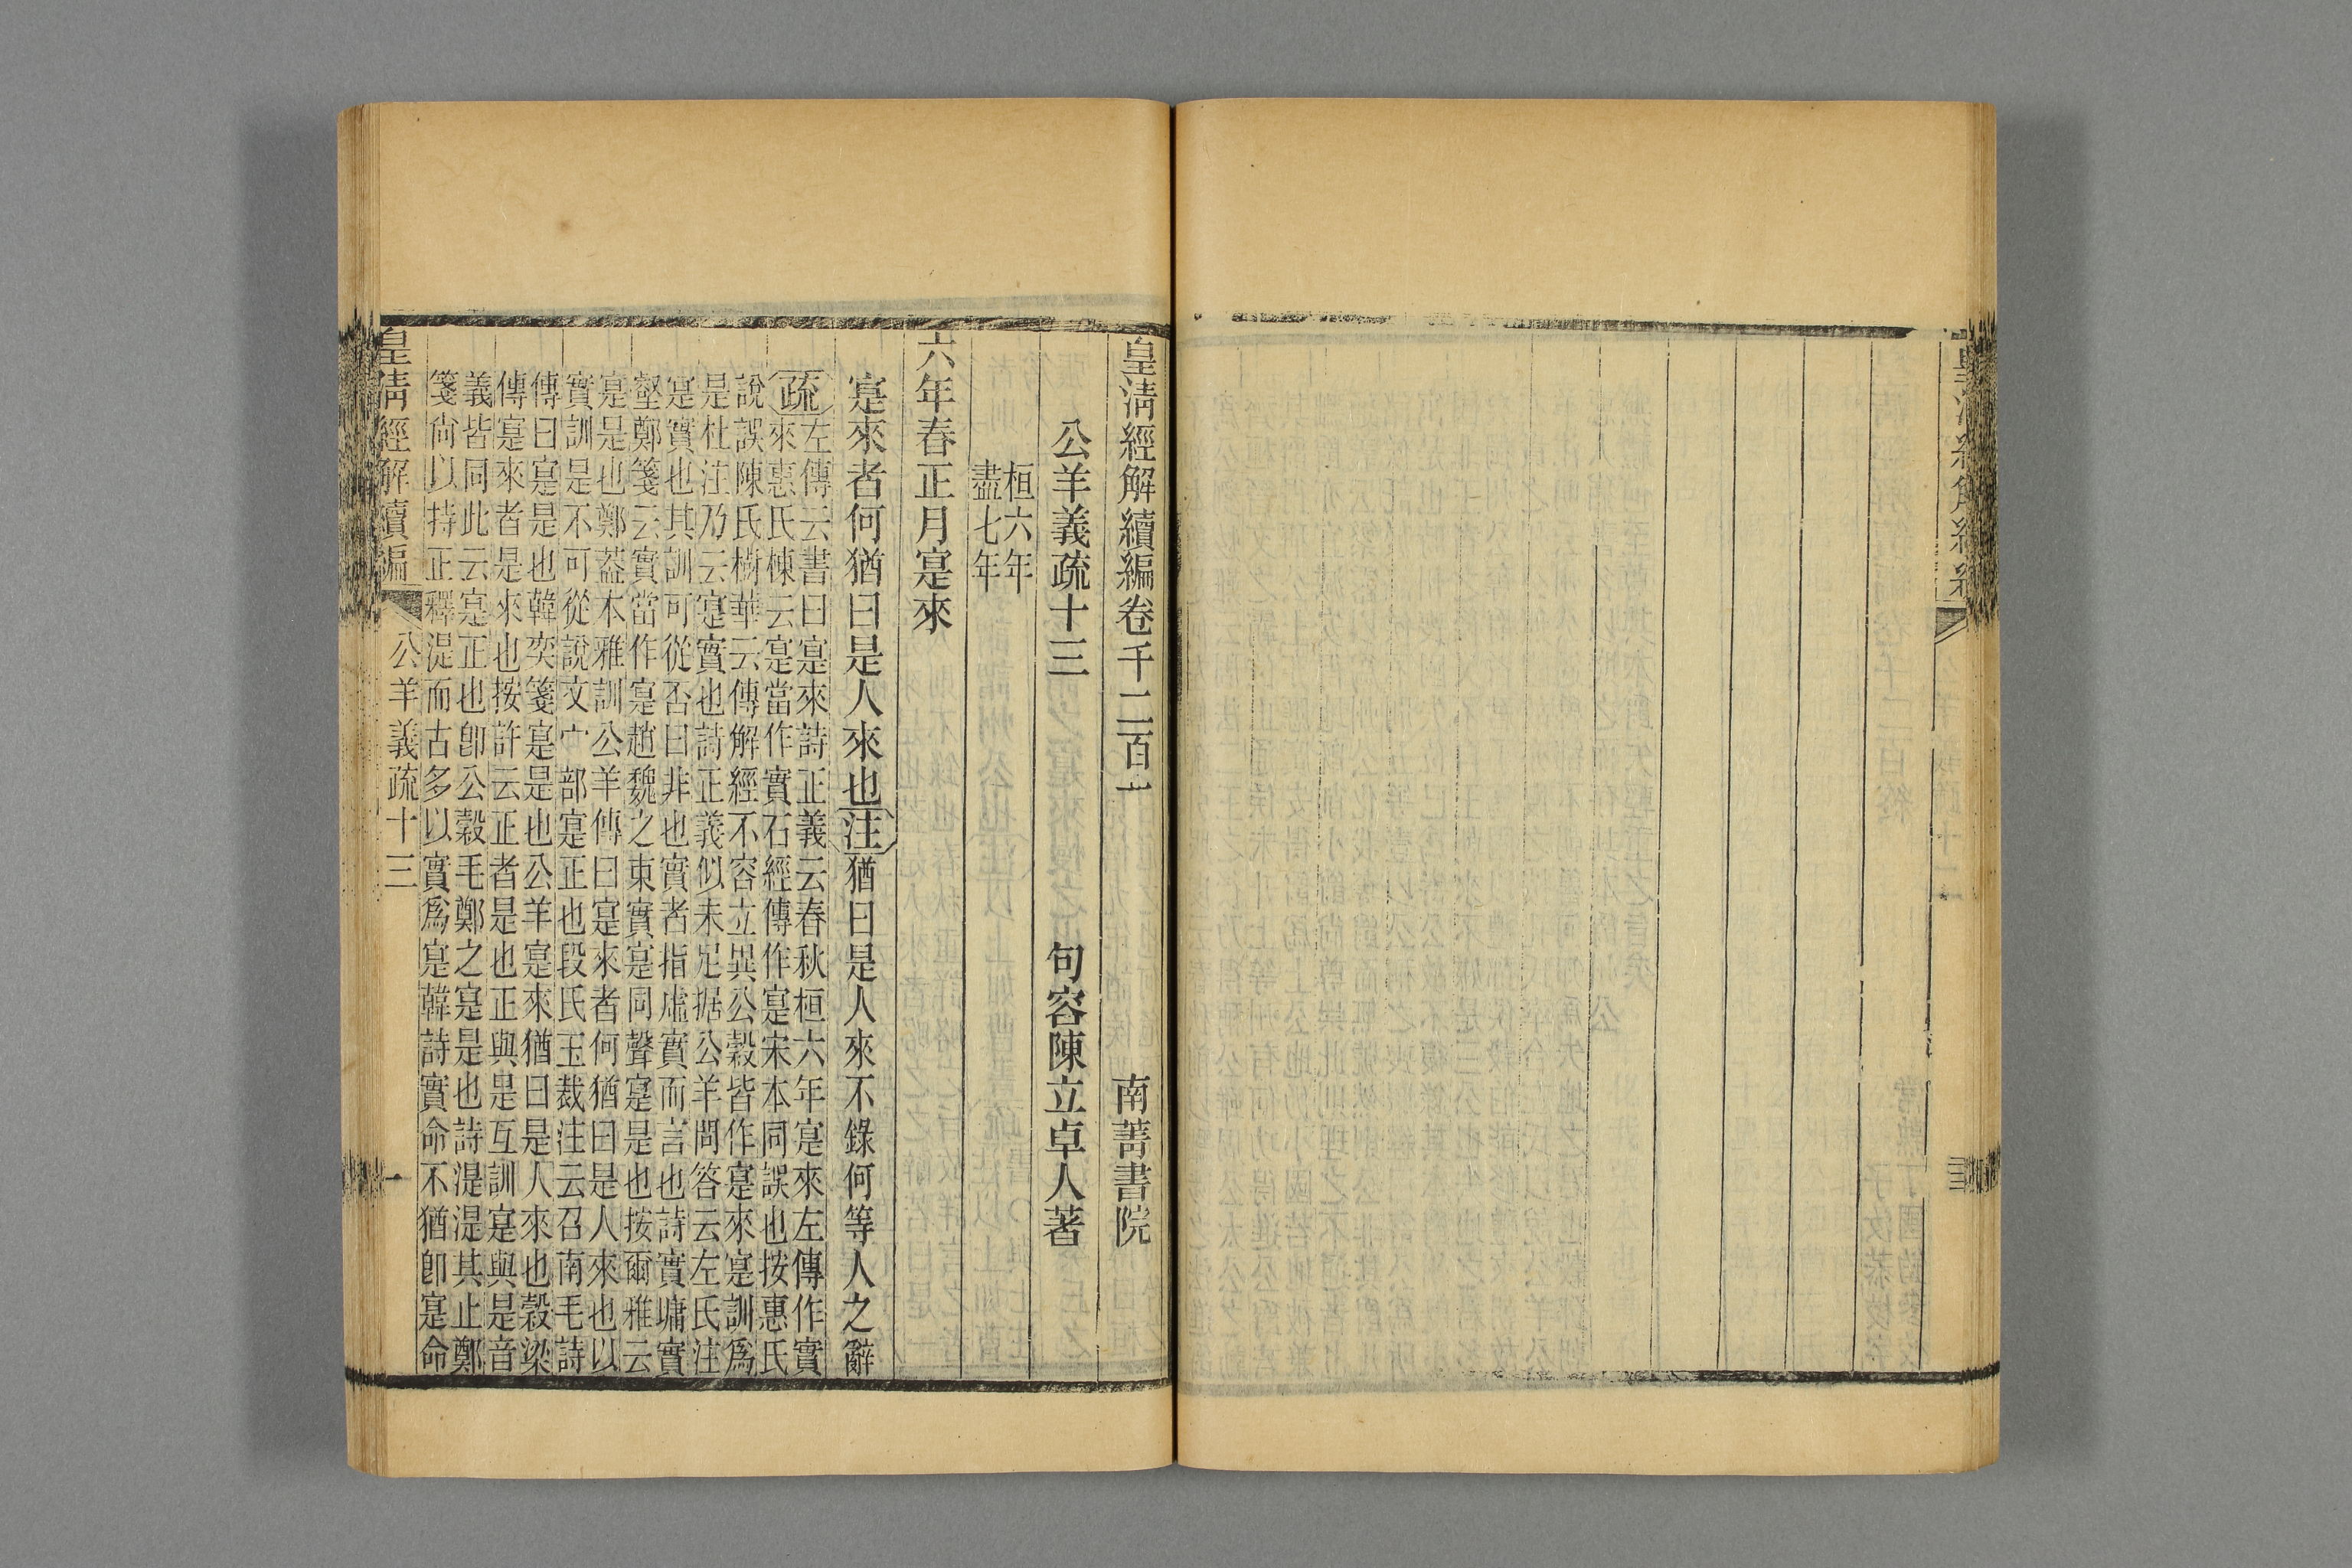 皇清經解續編卷千二百一　南菁書院
公羊義疏十三　句容陳立卓人著
桓六年
盡七年
六年春正月寔來
寔來者何猶曰是人來也注猶曰是人來不錄何等人之辭
疏左傳云書曰寔來詩正義云春秋桓六年寔來左傳作實
來惠氏棟云寔當作實石經傳作寔宋本同誤也按惠氏
說誤陳氏樹華云傳解經不容立異公穀皆作寔來寔訓爲
是杜注乃云寔實也詩正義似未足據公羊問答云左氏注
寔實也其訓可從否曰非也實者指虛實而言也詩實墉實
壑鄭箋云實當作寔趙魏之東實寔同聲寔是也按爾雅云
寔是也鄭葢本雅訓公羊傳曰寔來者何猶曰是人來也以
實訓是不可從說文宀部寔正也段氏玉裁注云召南毛詩
傳曰寔是也韓奕箋寔是也公羊寔來猶曰是人來也穀梁
傳寔來者是來也按許云正者是也正與是互訓寔與是音
義皆同此云寔正也卽公穀毛鄭之寔是也詩湜湜其止鄭
箋尙以持正釋湜而古多以實爲寔韓詩實命不猶卽寔命
皇清經解續編　公羊義疏十三　一